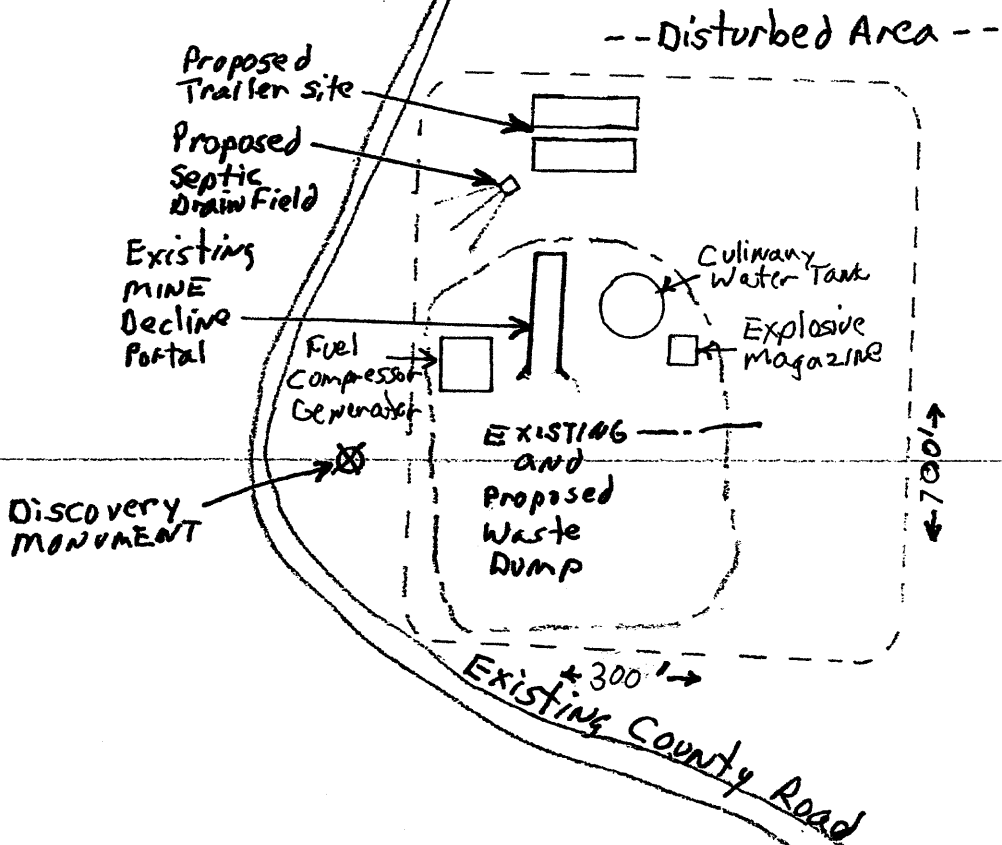 --Disturbed Area--
Proposed
Trailer site
Proposed
Septic
Drain Field
Existing
MINE
Decline
Portal
Culinary
Water Tank
Explosive
Magazine
Fuel
Compressor
Generator
EXISTING
AND
Proposed
Waste
Dump
700'
Discovery
MONUMENT
300'
Existing County Road